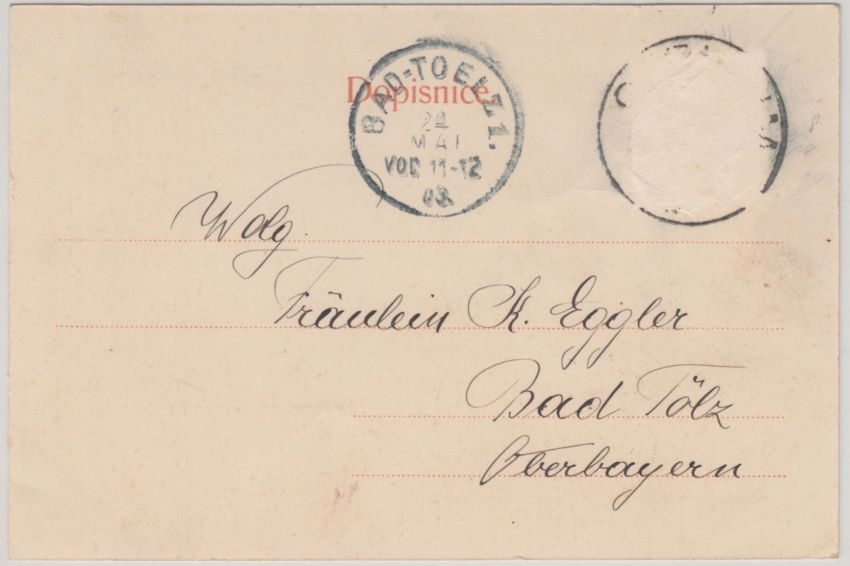 Dopisnice
BAD-TOELZ 1.
24
MAI
VOR 11-12
03.
Wolg.
Fräulein K. Eggler
Bad Tölz
Oberbayern